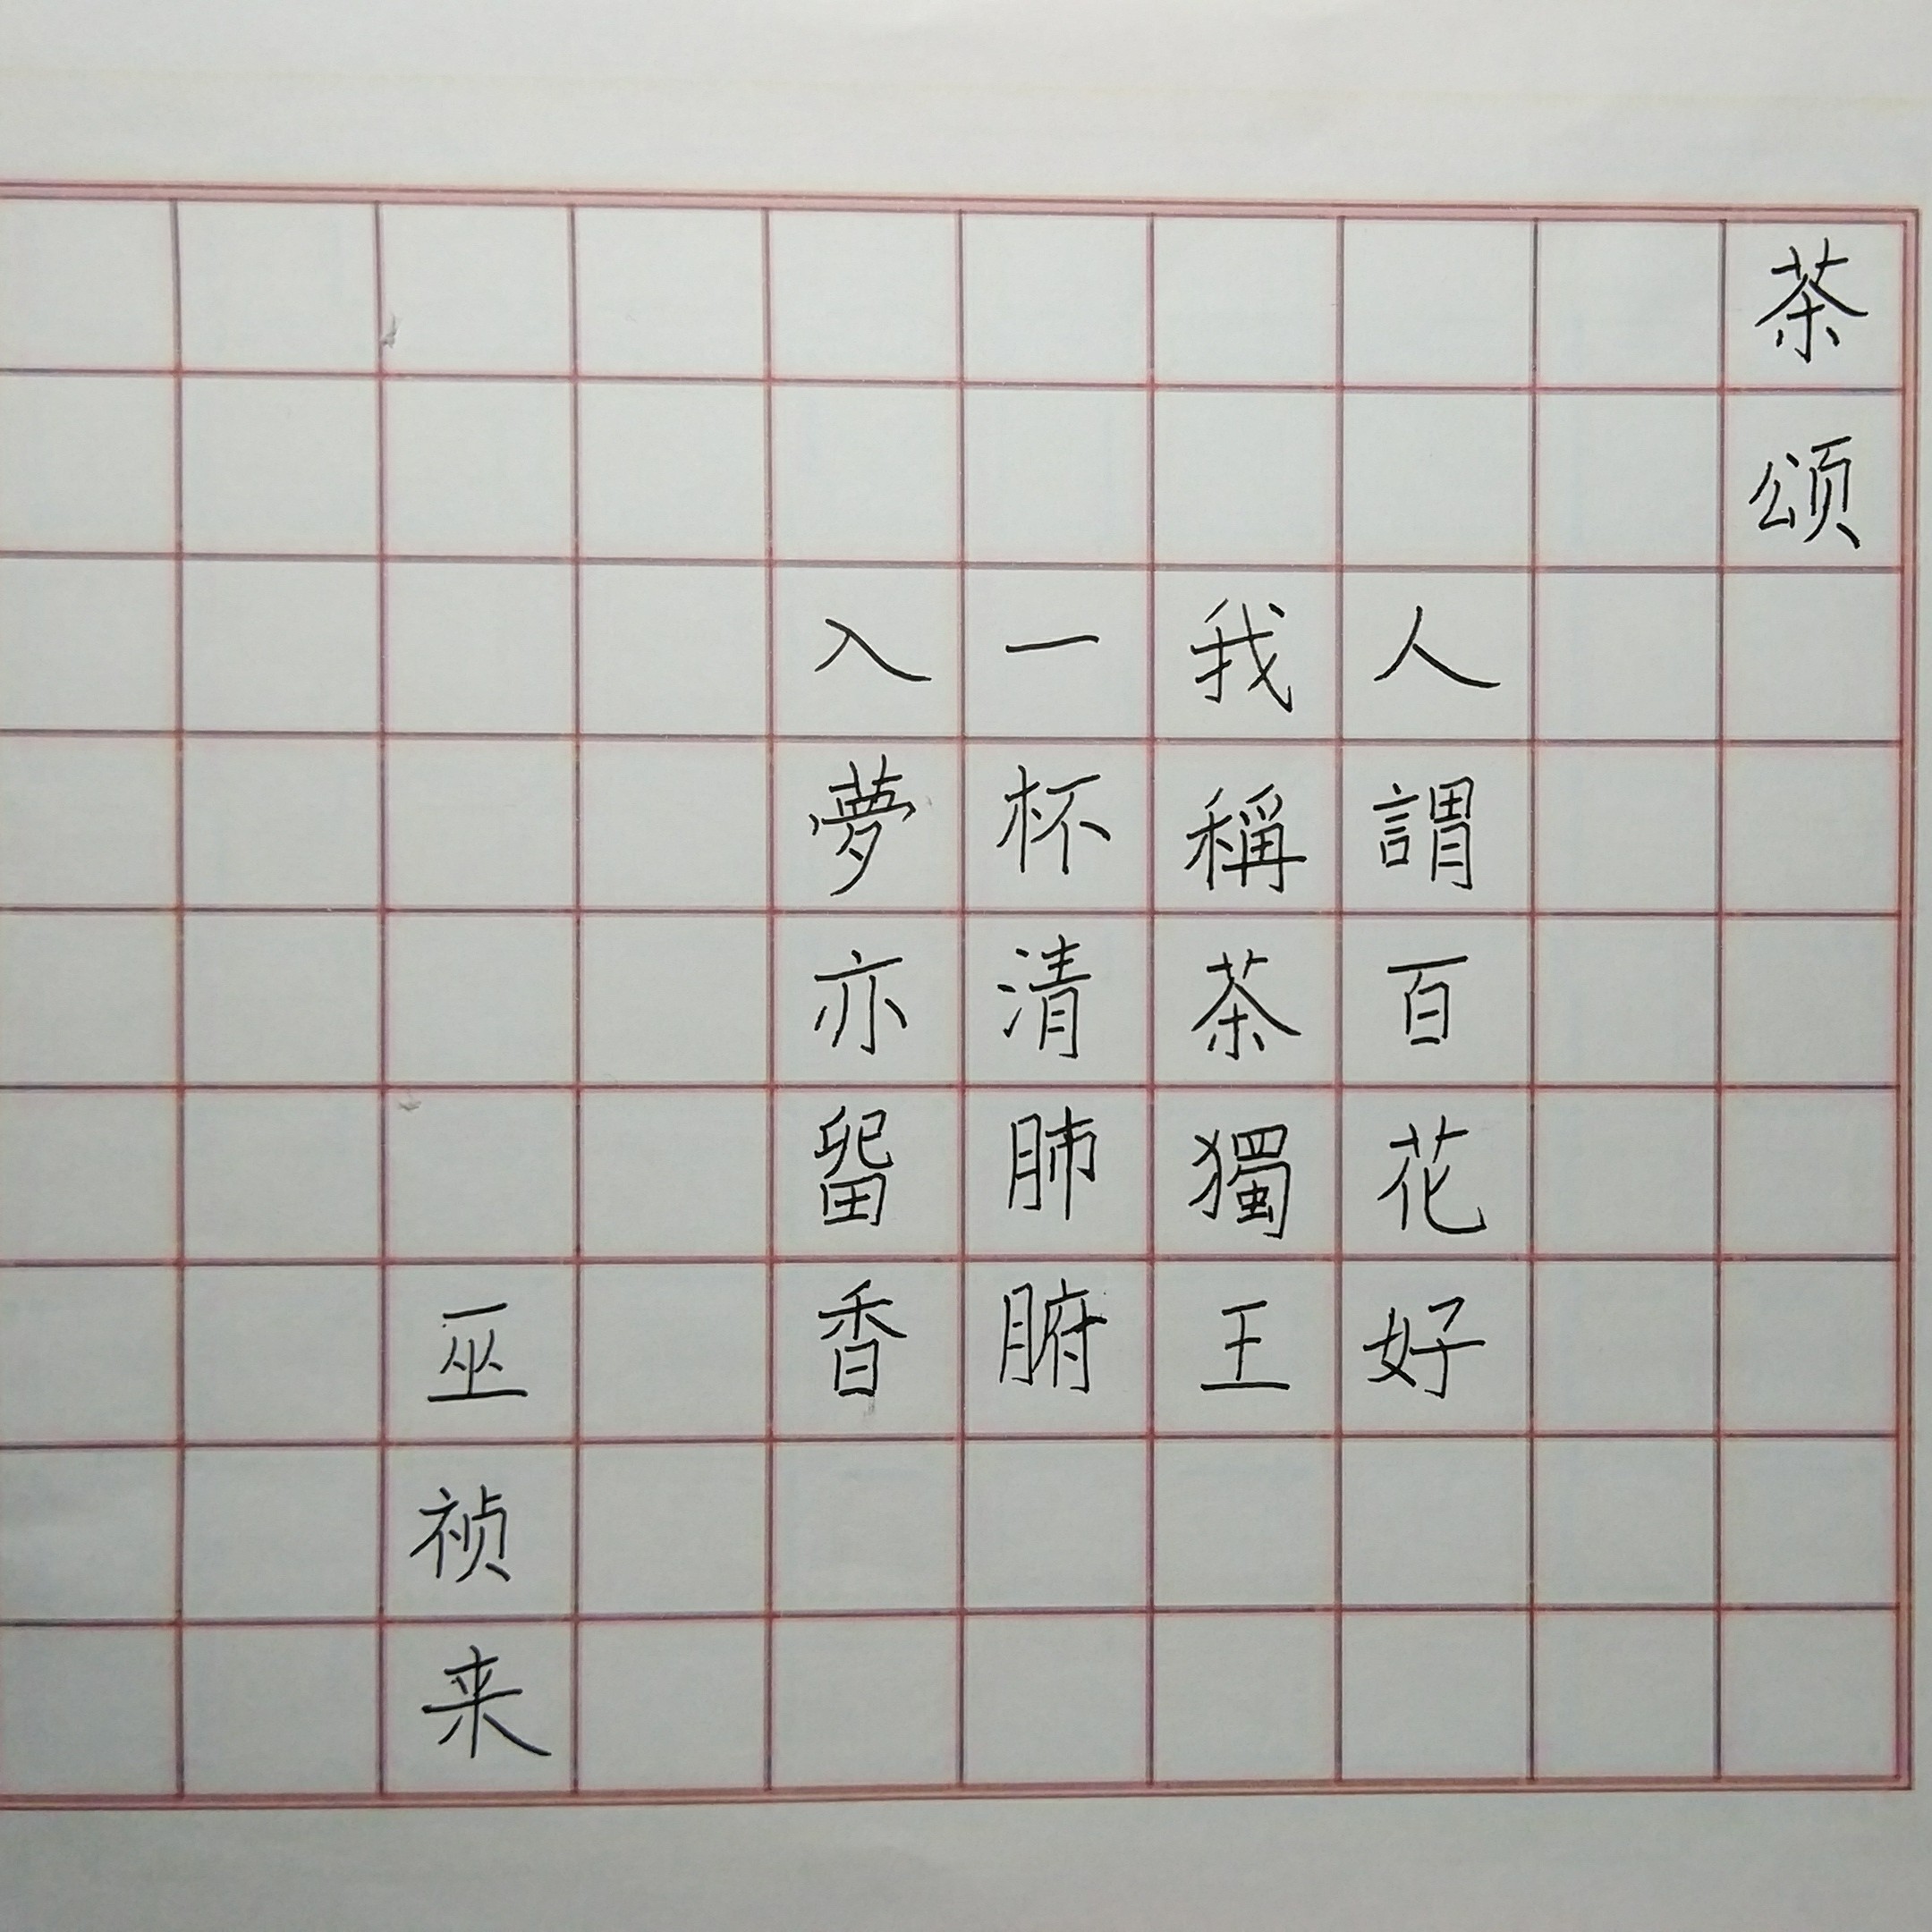 茶颂
人謂百花好
我稱茶獨王
一杯清肺腑
入夢亦留香
巫祯来